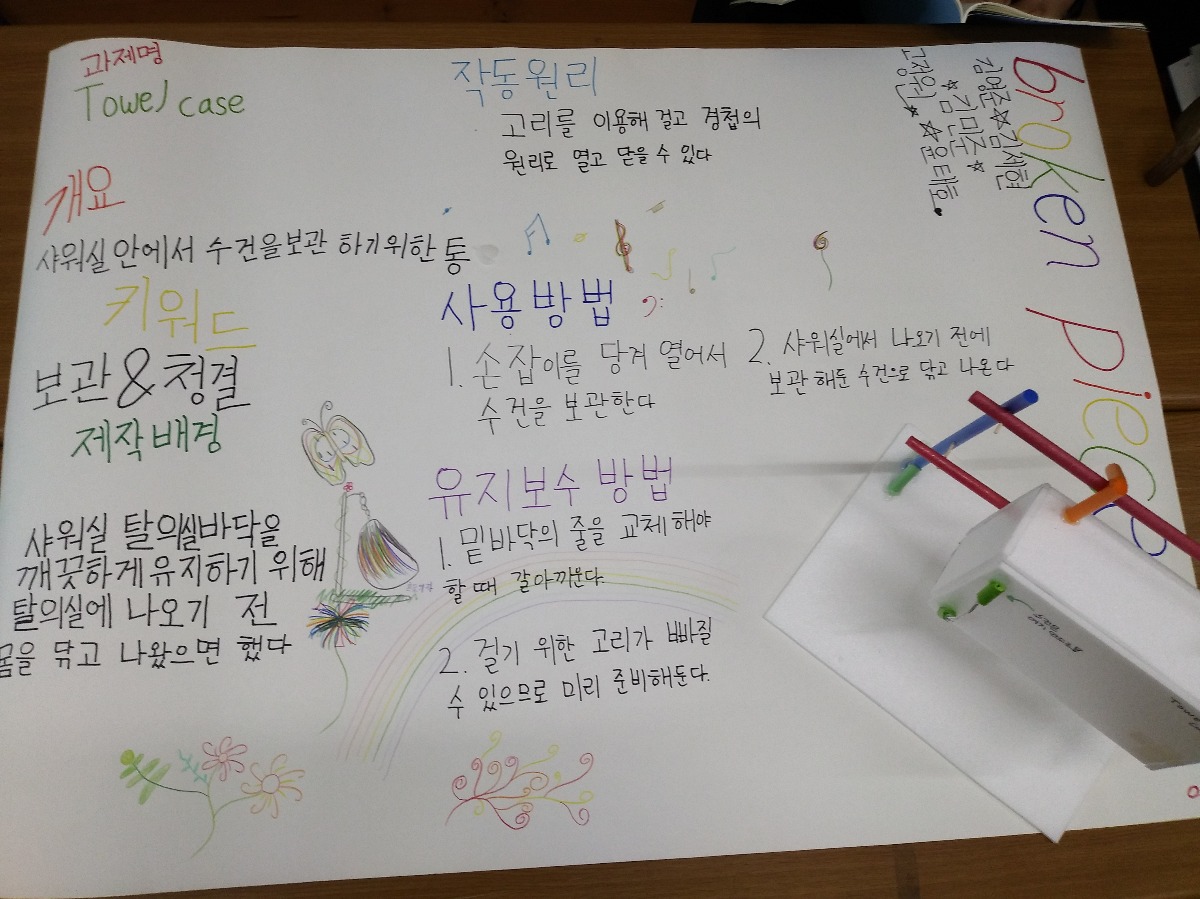 과제명
Towel case
개요
샤워실 안에서 수건을 보관 하기위한 통
키워드
보관 & 청결
제작배경
샤워실 탈의실바닥을
깨끗하게 유지하기 위해
탈의실에 나오기 전
몸을 닦고 나왔으면 했다
작동원리
고리를 이용해 걸고 경첩의
원리로 열고 닫을 수 있다
사용방법
1. 손잡이를 당겨 열어서
수건을 보관한다
2. 샤워실에서 나오기 전에
보관해둔 수건으로 닦고 나온다
유지보수 방법
1. 밑바닥의 줄을 교체해야
할 때 갈아끼운다.
2. 걸기 위한 고리가 빠질
수 있으므로 미리 준비해둔다.
broken piece
김세현
김미주
윤태호